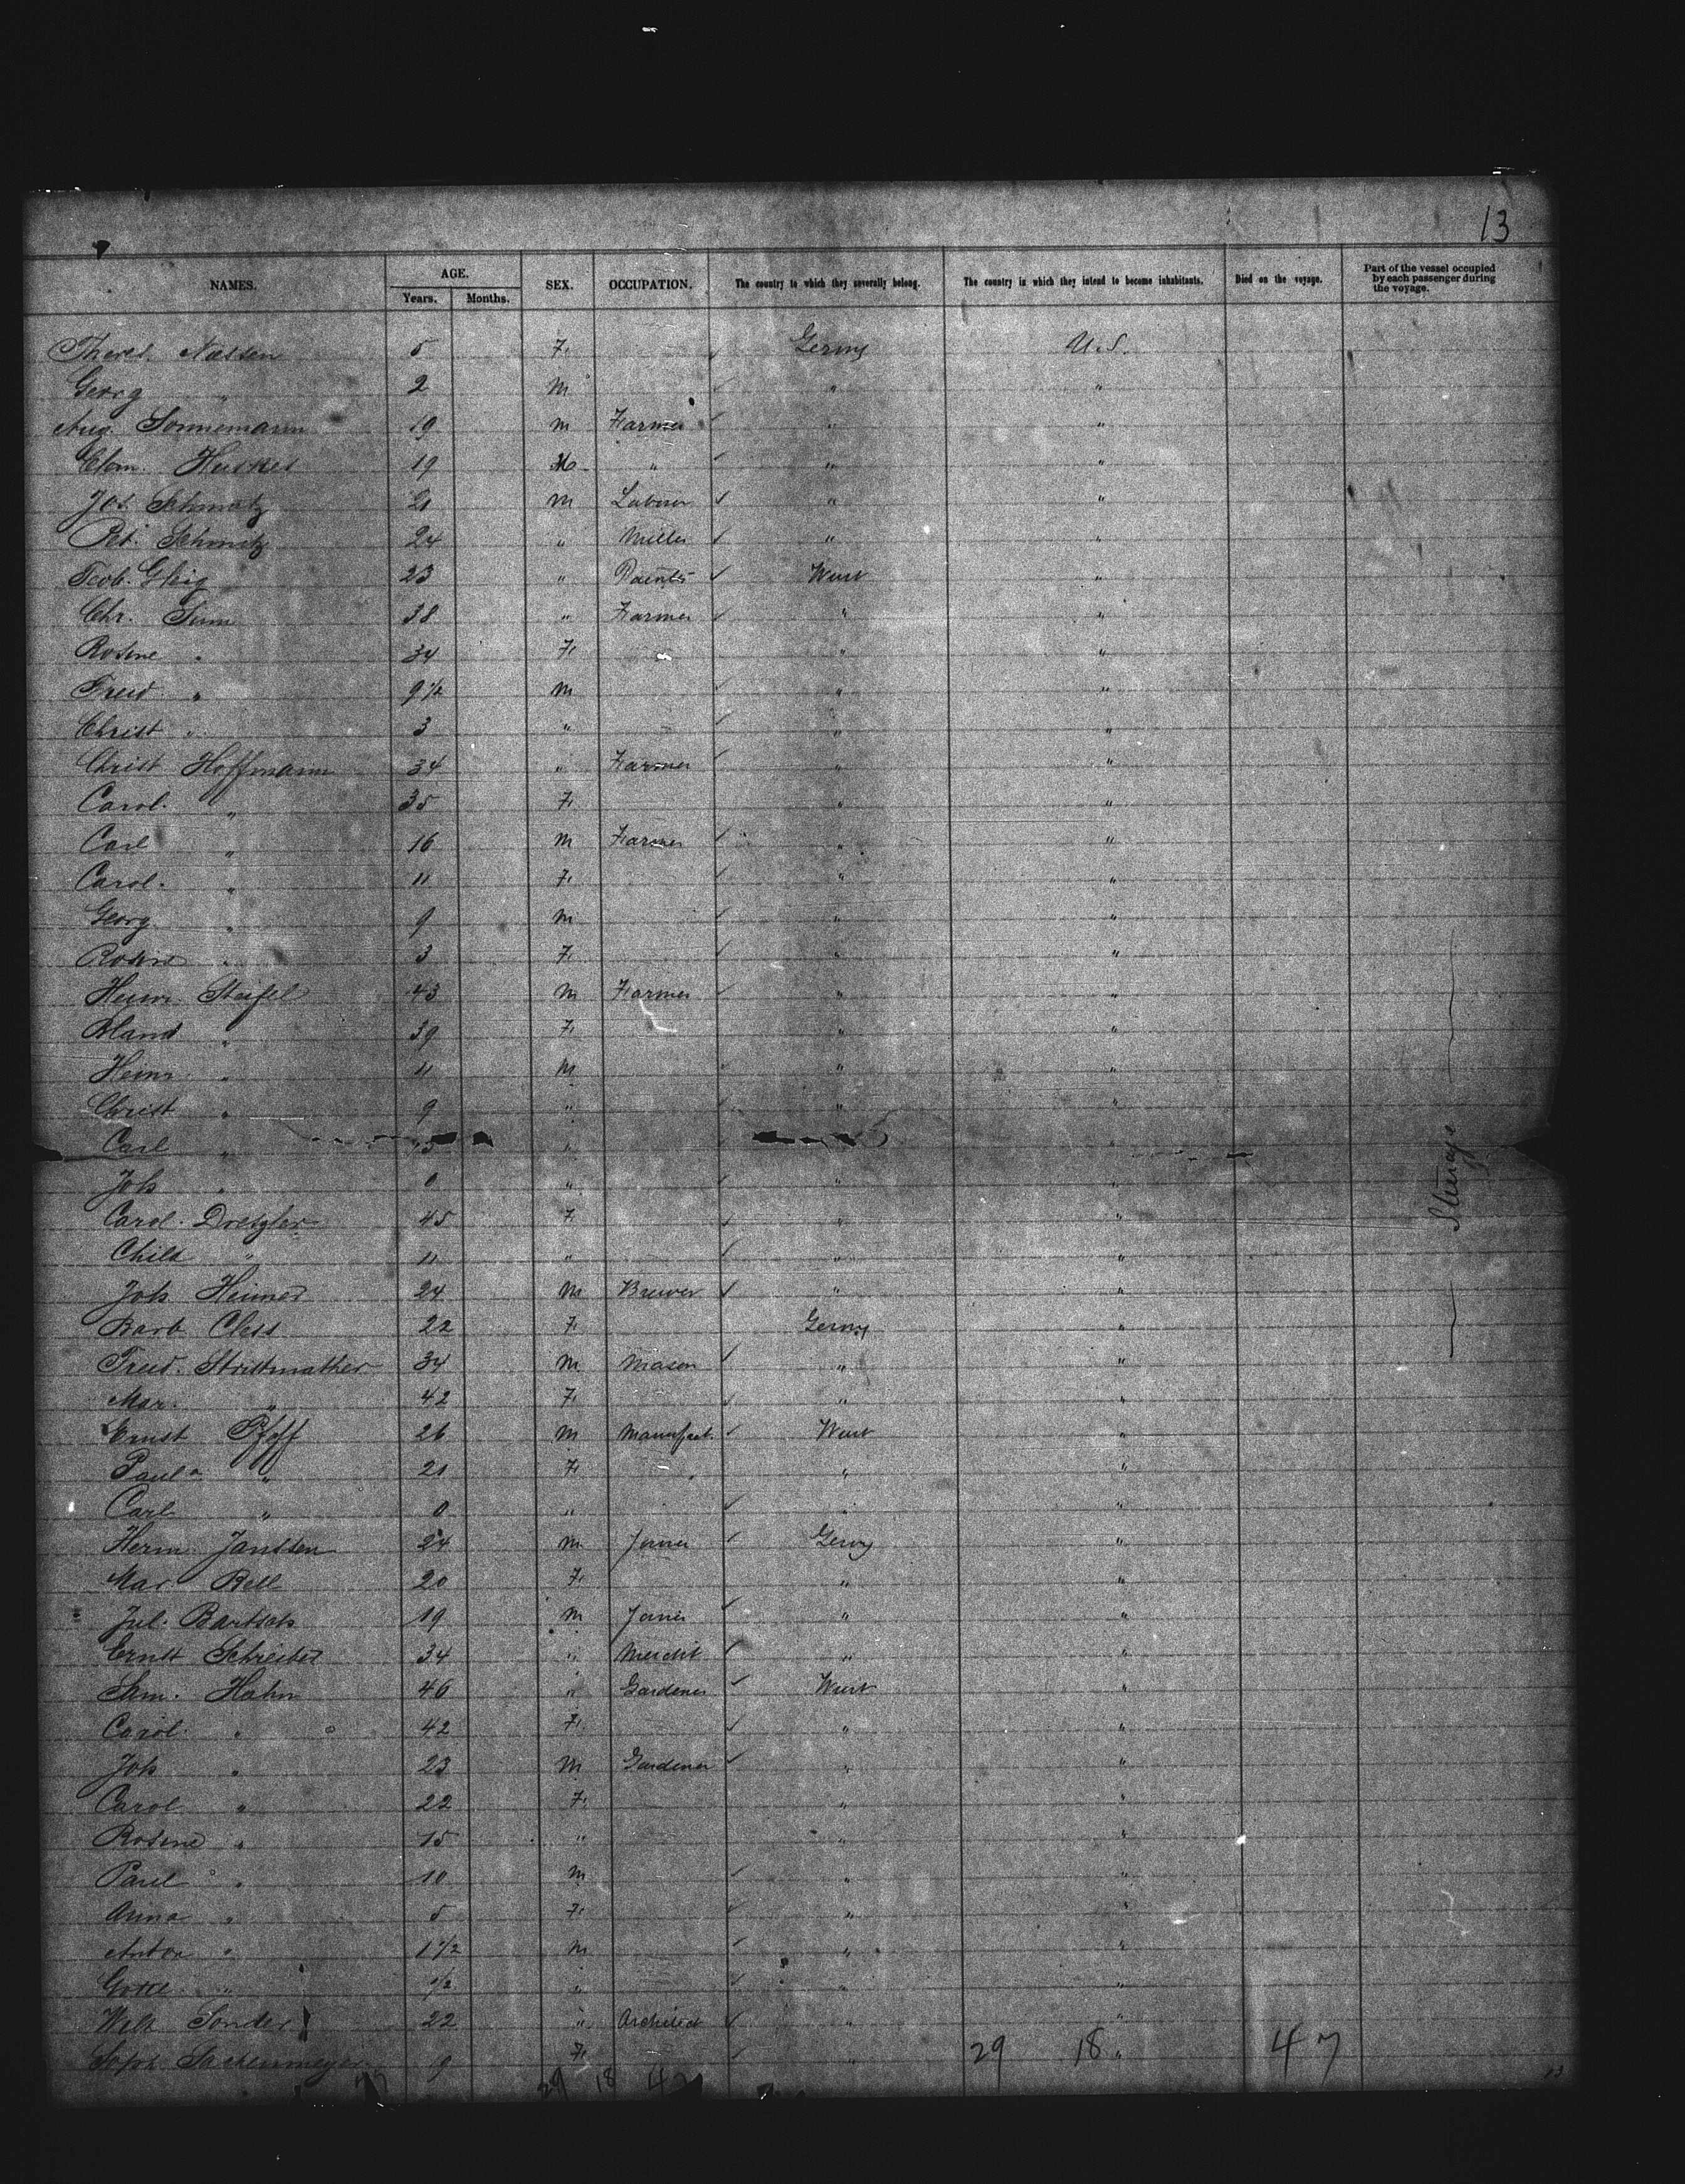 13
NAMES. AGE. SEX. OCCUPATION. The country to which they severally belong. The country in which they intend to become inhabitants. Died on the voyage. Part of the vessel occupied by each passenger during the voyage.
Years. Months.
Theres. Nassen 5 F. Germy U.S.
Georg " 2 M " "
Aug. Sonnemann 19 m Farmer " "
Clem. Huskes 19 " " "
Jos Schmitz 21 m Laborer " "
Pet. Schmitz 24 " Miller " "
23 " Painter Wurt "
Chr. 38 " Farmer " "
Rosine " 34 F. " "
Fried " 9 1/2 M " "
Christ " 3 " " "
Christ Hoffmann 34 " Farmer " "
Carol. " 35 F. " "
Carl " 16 M Farmer " "
Carol. " 11 F. " "
Georg " 9 m " "
Rosine " 3 F. " "
Heinr. Steifel 43 m Farmer " "
" 39 F. " "
Heinr. " 11 M " "
Christ " 9 " " "
Carl " " "
Joh " 0 " " "
Carol. 45 F " "
Child " 11 " " "
Joh Heimer 24 M Brewer " "
Barb Cless 22 F. Germy "
Fried. Strittmather 34 M Mason " "
Mar. " 42 F. " "
Ernst Pfaff 26 M Manufact. Wurt "
Paula " 21 F " "
Carl " 0 " " "
Herm Janssen 24 m Joiner Germy "
Mar. Bell 20 F. " "
Jul. Bartsch 19 m Joiner " "
Ernst Schreiber 34 " Mercht " "
Sam. Hahn 46 " Gardener Wurt "
Carol. " 42 F. " "
Joh " 23 M Gardener " "
Carol " 22 F. " "
Rosine " 15 " " "
Paul " 10 M " "
Anna " 5 F. " "
Anton " 1 1/2 M " "
Gottl. " 1/2 " " "
Wilh Sonder 22 " Architect " "
Soph. 19 F. " 29 18 " 47
29 18 47
Steerage
13